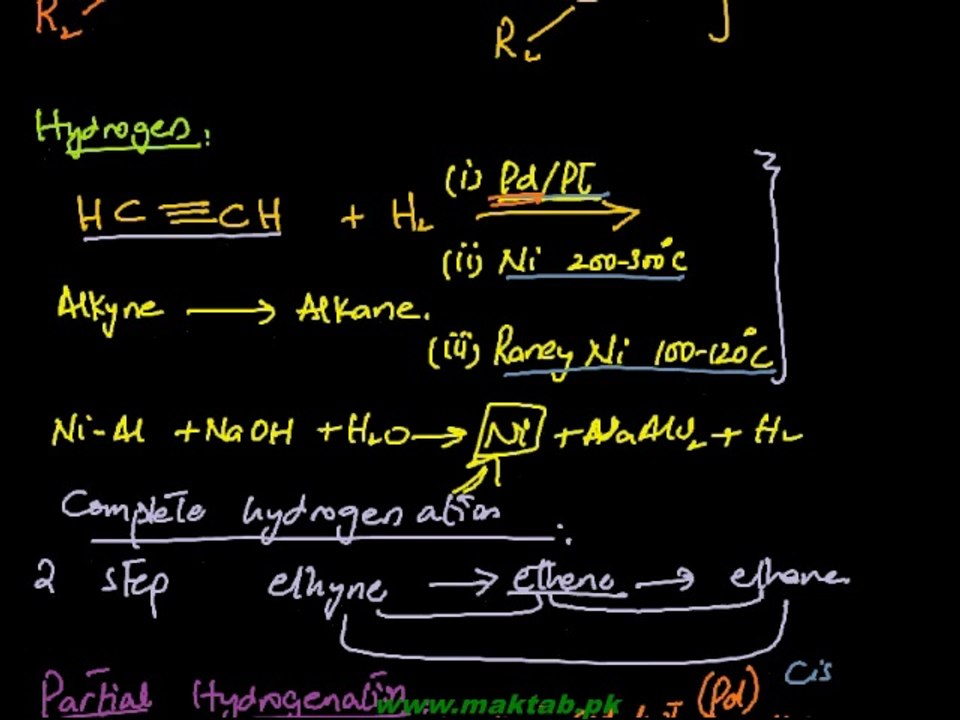 R₂ R₂ ]
Hydrogen:
HC≡CH + H₂ ⟶
(i) Pd/Pt
(ii) Ni 200-300°C
Alkyne ⟶ Alkane.
(iii) Raney Ni 100-120°C
Ni-Al + NaOH + H₂O ⟶ Ni + NaAlO₂ + H₂
Complete hydrogenation:
2 step ethyne ⟶ ethene ⟶ ethane
Partial Hydrogenation. (Pd) Cis
www.maktab.pk